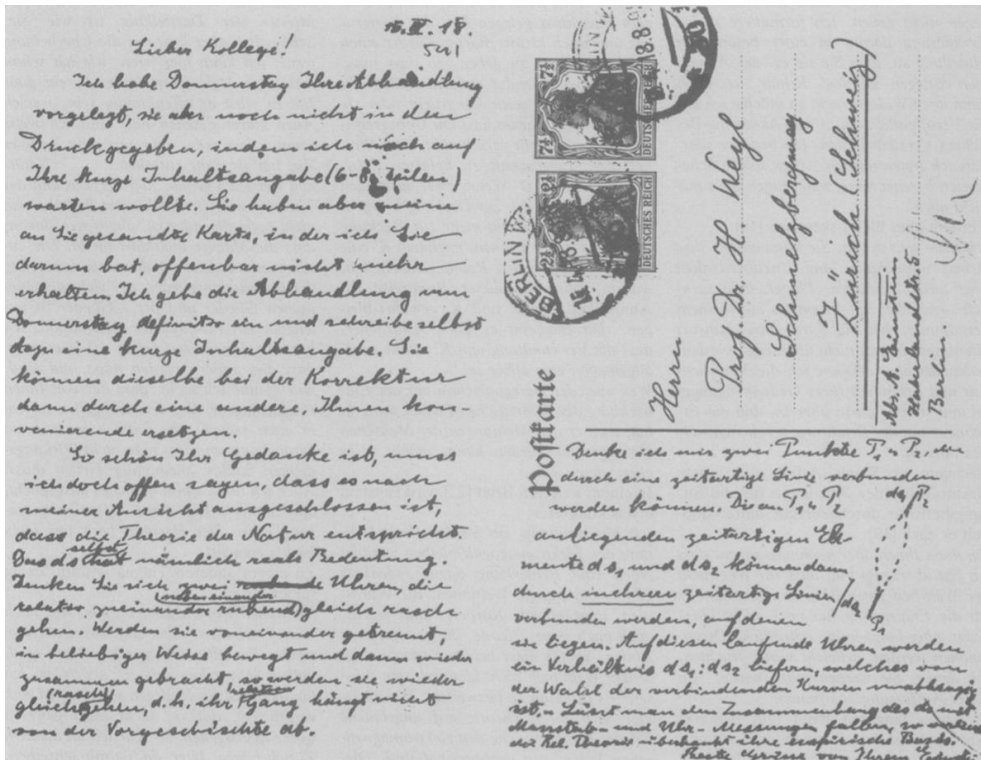 15. IV. 18.
Lieber Kollege!
Ich habe Donnerstag Ihre Abhandlung
vorgelegt, sie aber noch nicht in den
Druck gegeben, indem ich noch auf
Ihre kurze Inhaltsangabe (6-8 Zeilen)
warten wollte. Sie haben aber meine
an Sie gesandte Karte, in der ich Sie
darum bat, offenbar nicht mehr
erhalten. Ich gebe die Abhandlung nun
Donnerstag definitiv ein und schreibe selbst
dazu eine kurze Inhaltsangabe. Sie
können dieselbe bei der Korrektur
dann durch eine andere, Ihnen kon-
venierende ersetzen.
So schön Ihr Gedanke ist, muss
ich doch offen sagen, dass es nach
meiner Ansicht ausgeschlossen ist,
dass die Theorie der Natur entspricht.
Das ds selbst hat nämlich reale Bedeutung.
Denken Sie sich zwei Uhren, die
relativ zueinander ruhend (nebeneinander) gleich rasch
gehen. Werden sie voneinander getrennt,
in beliebiger Weise bewegt und dann wieder
zusammen gebracht, so werden sie wieder
gleich (rasch) gehen, d. h. ihr relativer Gang hängt nicht
von der Vorgeschichte ab.
Denke ich mir zwei Punkte P₁ u. P₂, die
durch eine zeitartige Linie verbunden
werden können. Die an P₁ u. P₂
anliegenden zeitartigen Ele-
mente ds₁ und ds₂ können dann
durch mehrere zeitartige Linien
verbunden werden, auf denen
sie liegen. Auf diesen laufende Uhren werden
ein Verhältnis ds₁ : ds₂ liefern, welches von
der Wahl der verbindenden Kurven unabhängig
ist. – Lässt man den Zusammenhang des ds mit
Massstab- und Uhr-Messungen fallen, so verliert
die Rel. Theorie überhaupt ihre empirische Basis.
Beste Grüsse von Ihrem Einstein
ds₂ P₂
ds₁
P₁
Postkarte
Herrn
Prof. Dr. H. Weyl
Schmelzbergweg
Zürich (Schweiz)
Abs. A. Einstein
Haberlandstr. 5
Berlin
7½ 7½
DEUTSCHES REICH
2½ 2½
DEUTSCHES REICH
BERLIN